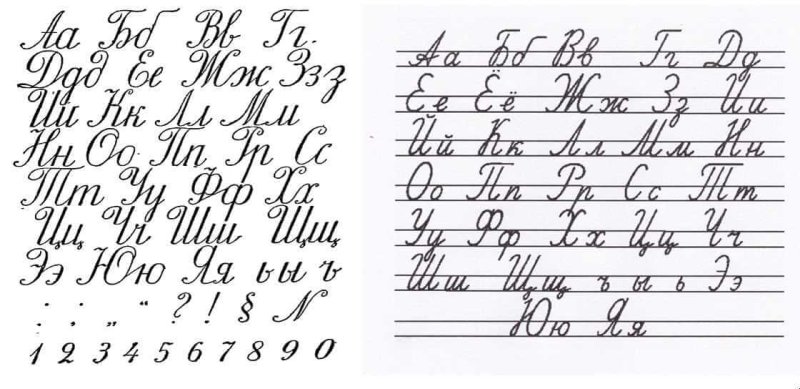 Аа Бб Вв Гг.
Ддд Ее Жж Ззз
Ии Кк Лл Мм
Нн Оо Пп Рр Сс
Тт Уу Фф Хх
Цц Чч Шш Щщ
Ээ Юю Яя ь ы ъ
: ; „ “ ? ! § N
1 2 3 4 5 6 7 8 9 0
Аа Бб Вв Гг Дд
Ее Ёё Жж Зз Ии
Йй Кк Лл Мм Нн
Оо Пп Рр Сс Тт
Уу Фф Хх Цц Чч
Шш Щщ ъ ы ь Ээ
Юю Яя